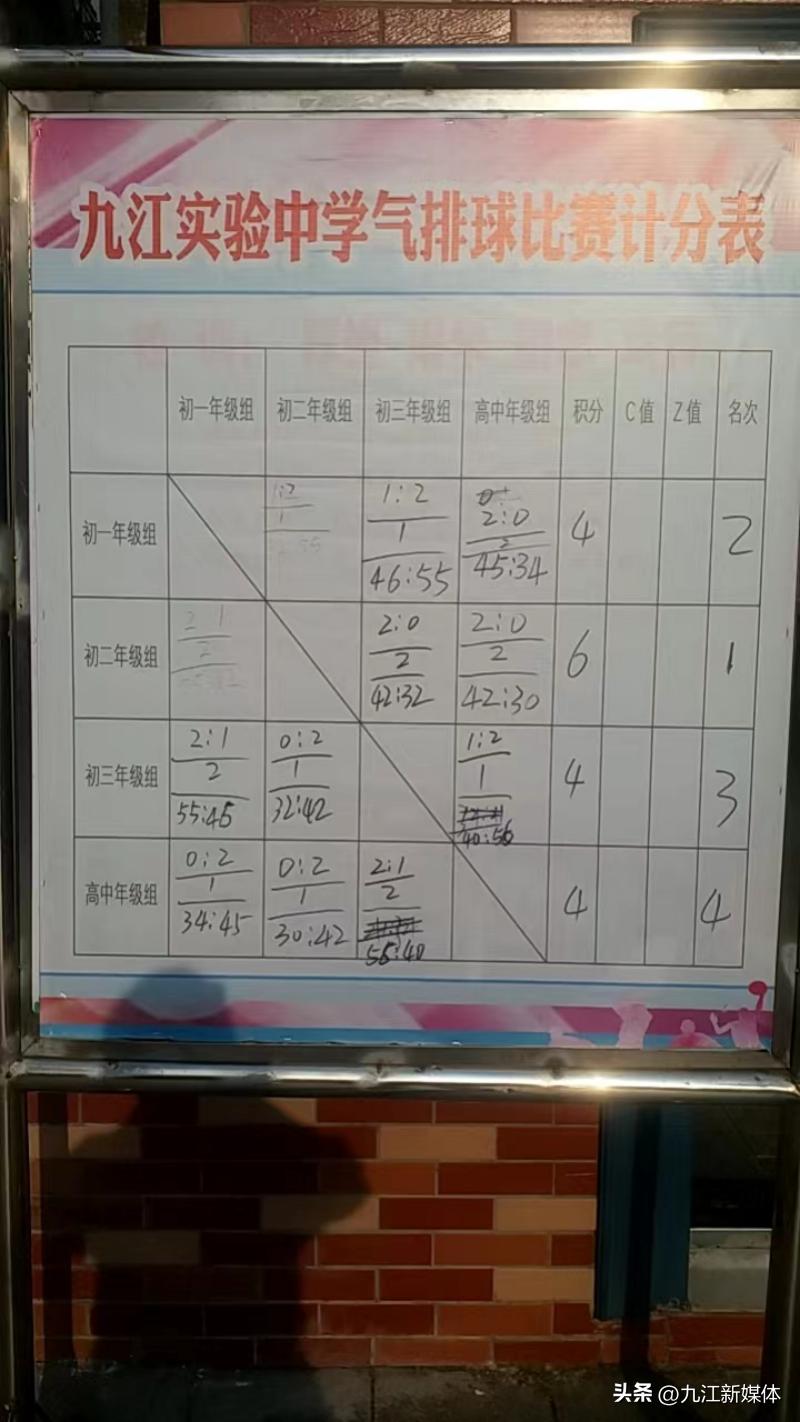 九江实验中学气排球比赛计分表
初一年级组 初二年级组 初三年级组 高中年级组 积分 C值 Z值 名次
初一年级组 1:2 1:2 2:0 4 2
1 1 2
46:55 45:34
初二年级组 2:1 2:0 2:0 6 1
2 2 2
42:32 42:30
初三年级组 2:1 0:2 1:2 4 3
2 1 1
55:46 32:42 40:56
高中年级组 0:2 0:2 2:1 4 4
1 1 2
34:45 30:42 56:40
头条 @九江新媒体